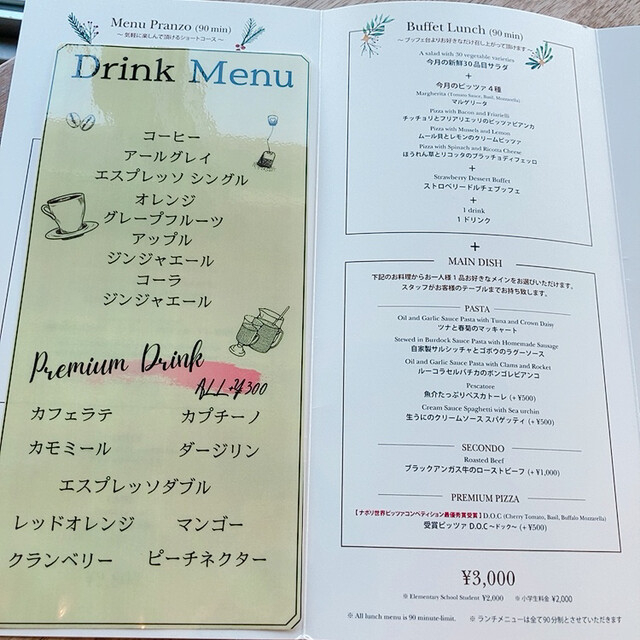 Menu Pranzo (90 min)
～ 気軽に楽しんで頂けるショートコース ～
Drink Menu
コーヒー
アールグレイ
エスプレッソ シングル
オレンジ
グレープフルーツ
アップル
ジンジャエール
コーラ
ジンジャエール
Premium Drink
ALL+¥300
カフェラテ カプチーノ
カモミール ダージリン
エスプレッソダブル
レッドオレンジ マンゴー
クランベリー ピーチネクター
Buffet Lunch (90 min)
～ ブッフェ台よりお好きなだけ召し上がって頂けます ～
A salad with 30 vegetable varieties
今月の新鮮30品目サラダ
+
今月のピッツァ4種
Margherita (Tomato Sauce, Basil, Mozzarella)
マルゲリータ
Pizza with Bacon and Friarielli
チッチョリとフリアリエッリのピッツァビアンカ
Pizza with Mussels and Lemon
ムール貝とレモンのクリームピッツァ
Pizza with Spinach and Ricotta Cheese
ほうれん草とリコッタのブラッチョディフェッロ
+
Strawberry Dessert Buffet
ストロベリードルチェブッフェ
+
1 drink
1 ドリンク
+
MAIN DISH
下記のお料理からお一人様1品お好きなメインをお選びいただけます。
スタッフがお客様のテーブルまでお持ち致します。
PASTA
Oil and Garlic Sauce Pasta with Tuna and Crown Daisy
ツナと春菊のマッキャート
Stewed in Burdock Sauce Pasta with Homemade Sausage
自家製サルシッチャとゴボウのラグーソース
Oil and Garlic Sauce Pasta with Clams and Rocket
ルーコラセルバチカのボンゴレビアンコ
Pescatore
魚介たっぷりペスカトーレ (+ ¥500)
Cream Sauce Spaghetti with Sea urchin
生うにのクリームソース スパゲッティ (+ ¥500)
SECONDO
Roasted Beef
ブラックアンガス牛のローストビーフ (+ ¥1,000)
PREMIUM PIZZA
【ナポリ世界ピッツァコンペティション最優秀賞受賞】D.O.C (Cherry Tomato, Basil, Buffalo Mozzarella)
受賞ピッツァ D.O.C ～ドック～ (+ ¥500)
¥3,000
※ Elementary School Student ¥2,000 ※ 小学生料金 ¥2,000
※ All lunch menu is 90 minute-limit. ※ ランチメニューは全て90分制とさせていただきます